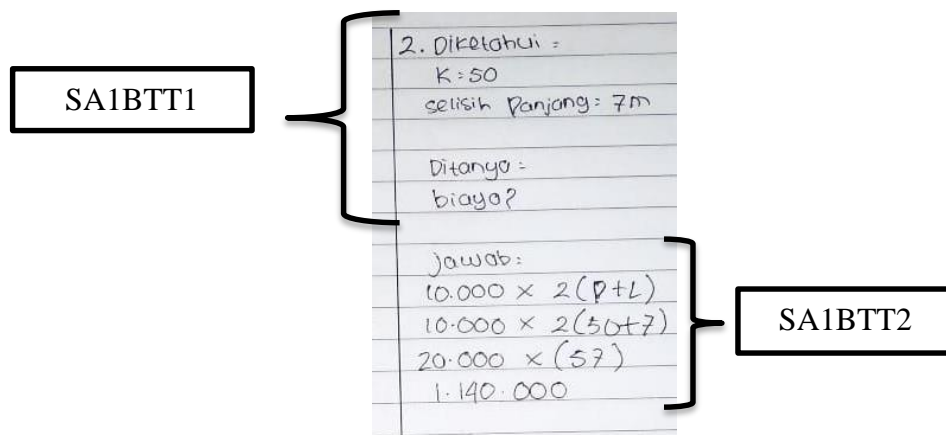 SA1BTT1
2. Diketahui =
K = 50
selisih Panjang = 7m
Ditanya =
biaya?
jawab:
10.000 × 2(P+L)
10.000 × 2(50+7)
20.000 × (57)
1.140.000
SA1BTT2